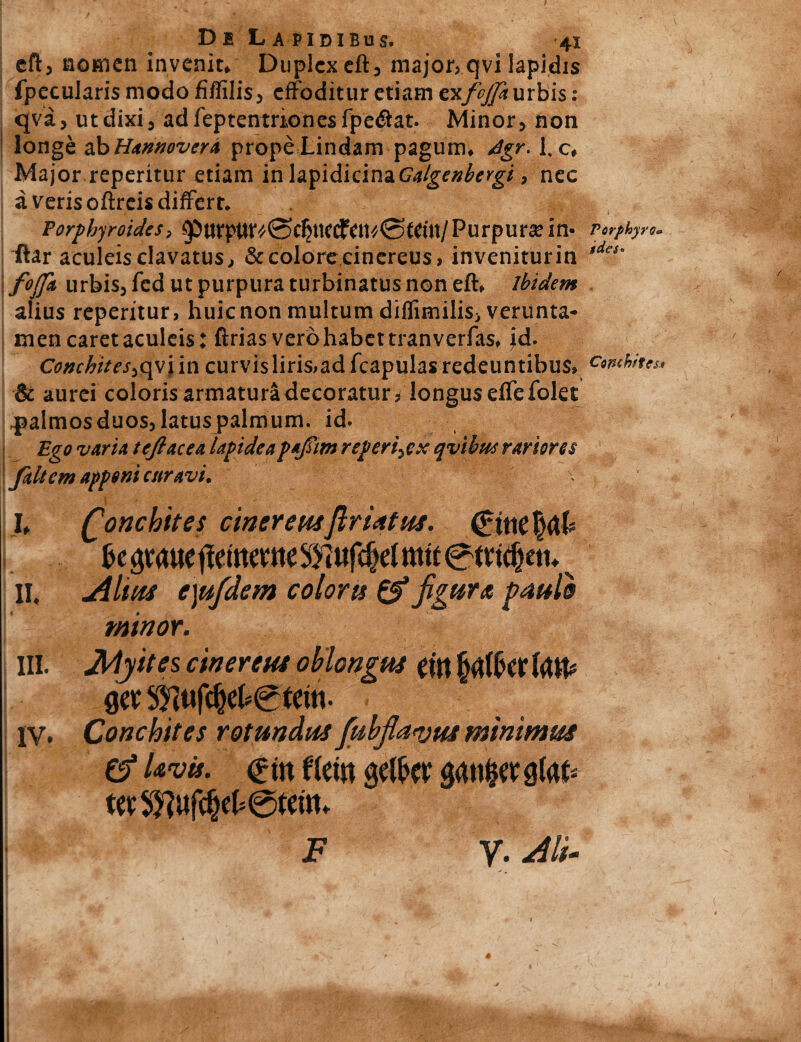 DE LAPIDIBUS. 41
eſt, nomen invenit. Duplex eſt, major, qvi lapidis
ſpecularis modo fiſſilis, effoditur etiam ex foſſa urbis:
qvà, ut dixi, ad ſeptentriones ſpectat. Minor, non
longè ab Hannovera propè Lindam pagum. Agr. l. c.
Major reperitur etiam in lapidicina Galgenbergi, nec
à veris oſtreis differt.
Porphyroides, Purpur-Schnecken-Stein/ Purpuræ in-
ſtar aculeis clavatus, & colore cinereus, invenitur in
foſſa urbis, ſed ut purpura turbinatus non eſt. Ibidem
alius reperitur, huic non multum diſſimilis, verunta-
men caret aculeis: ſtrias verò habet tranverſas. id.
Conchites, qvi in curvis liris, ad ſcapulas redeuntibus,
& aurei coloris armaturâ decoratur, longus eſſe ſolet
palmos duos, latus palmum. id.
Ego varia teſtacea lapidea paſſim reperi, ex qvibus rariores
ſaltem apponi curavi.
Porphyro-
ides.
Conchites.
I. Conchites cinereus ſtriatus. Eine hal-
be graue ſteinerne Muſchel mit Strichen.
II. Alius ejuſdem coloris & figuræ paulò
minor.
III. Myites cinereus oblongus ein halber lan-
ger Muſchel-Stein.
IV. Conchites rotundus ſubflavus minimus
& lævis. Ein klein gelber gantzer glat-
ter Muſchel-Stein.
F V. Ali-